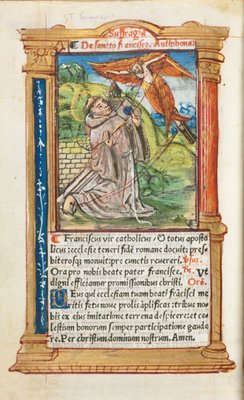 Suffragia
De sancto francisco. Antiphona.
Franciscus vir catholicus / & totus aposto
licus: ecclesie teneri fidē romane docuit: pres
biterosqz monuit: pre cunctis reuereri. Vsus.
Ora pro nobis beate pater francisce. Re. Vt
digni efficiamur promissionibus christi. Orō.
Deus qui ecclesiam tuam beati frācisci me
ritis fetu noue prolis āplificas: tribue no
bis ex eius imitatione terrena despicere: et ce
lestium donorum semper participatione gaude
re. Per christum dominum nostrum. Amen.